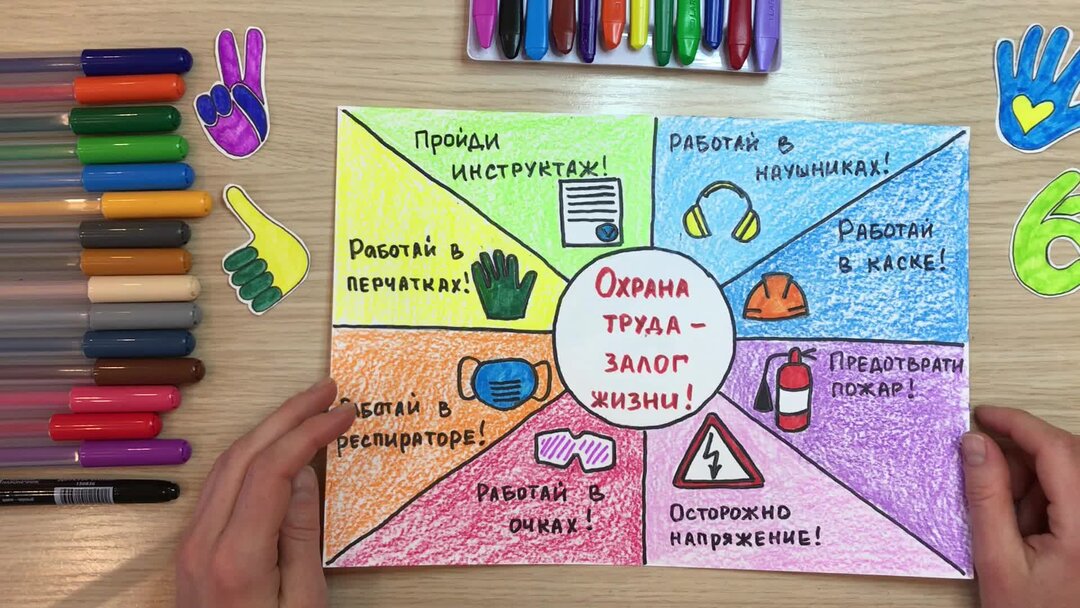 Пройди
инструктаж!
Работай в
наушниках!
Работай
в каске!
Предотврати
пожар!
Осторожно
напряжение!
Работай в
очках!
Работай в
респираторе!
Работай в
перчатках!
Охрана
труда –
залог
жизни!
6